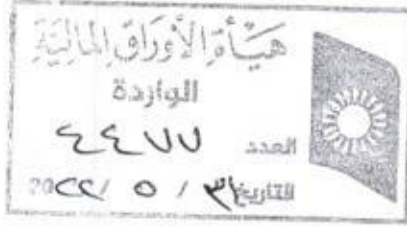 هَيْأَةُ الأَوْرَاقِ المَالِيَّةِ
الواردة
العدد ٤٤٧٧
التاريخ / ٥ / 20٢٢